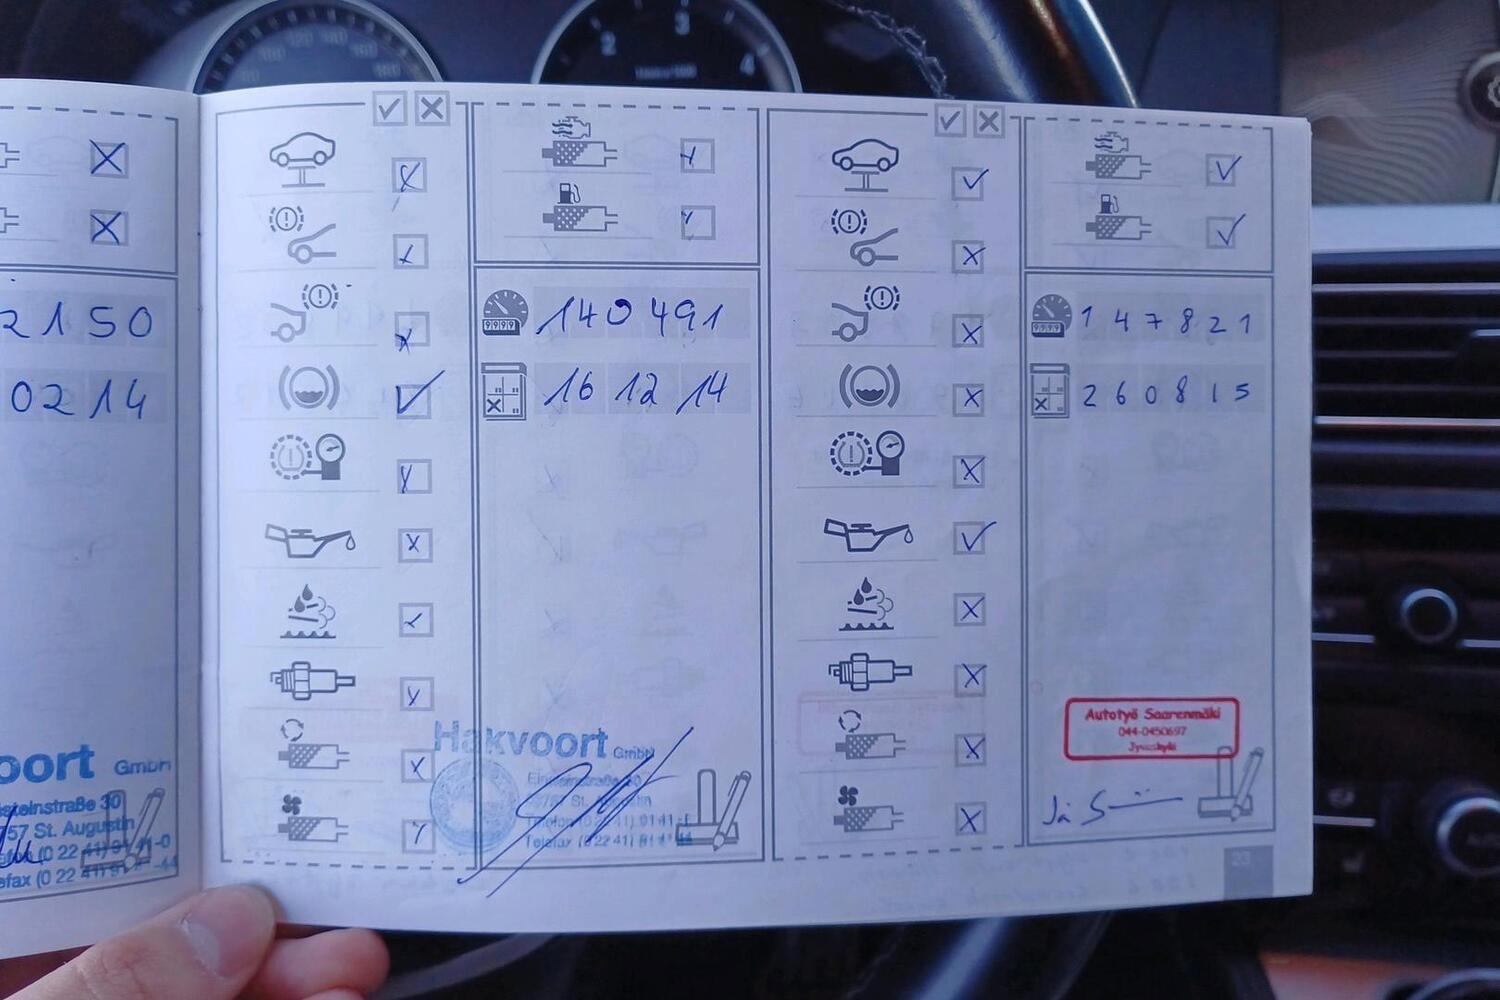 2150
0214
oort GmbH
steinstraße 30
757 St. Augustin
efax (0 22 41) 91 41-44
140491
16 12 14
Hakvoort GmbH
Einsteinstraße 30
53757 St. Augustin
Telefon (0 22 41) 91 41-0
Telefax (0 22 41) 91 41-44
147821
260815
Autotyö Saarenmäki
044-0450697
Jyväskylä
23
2
3
4